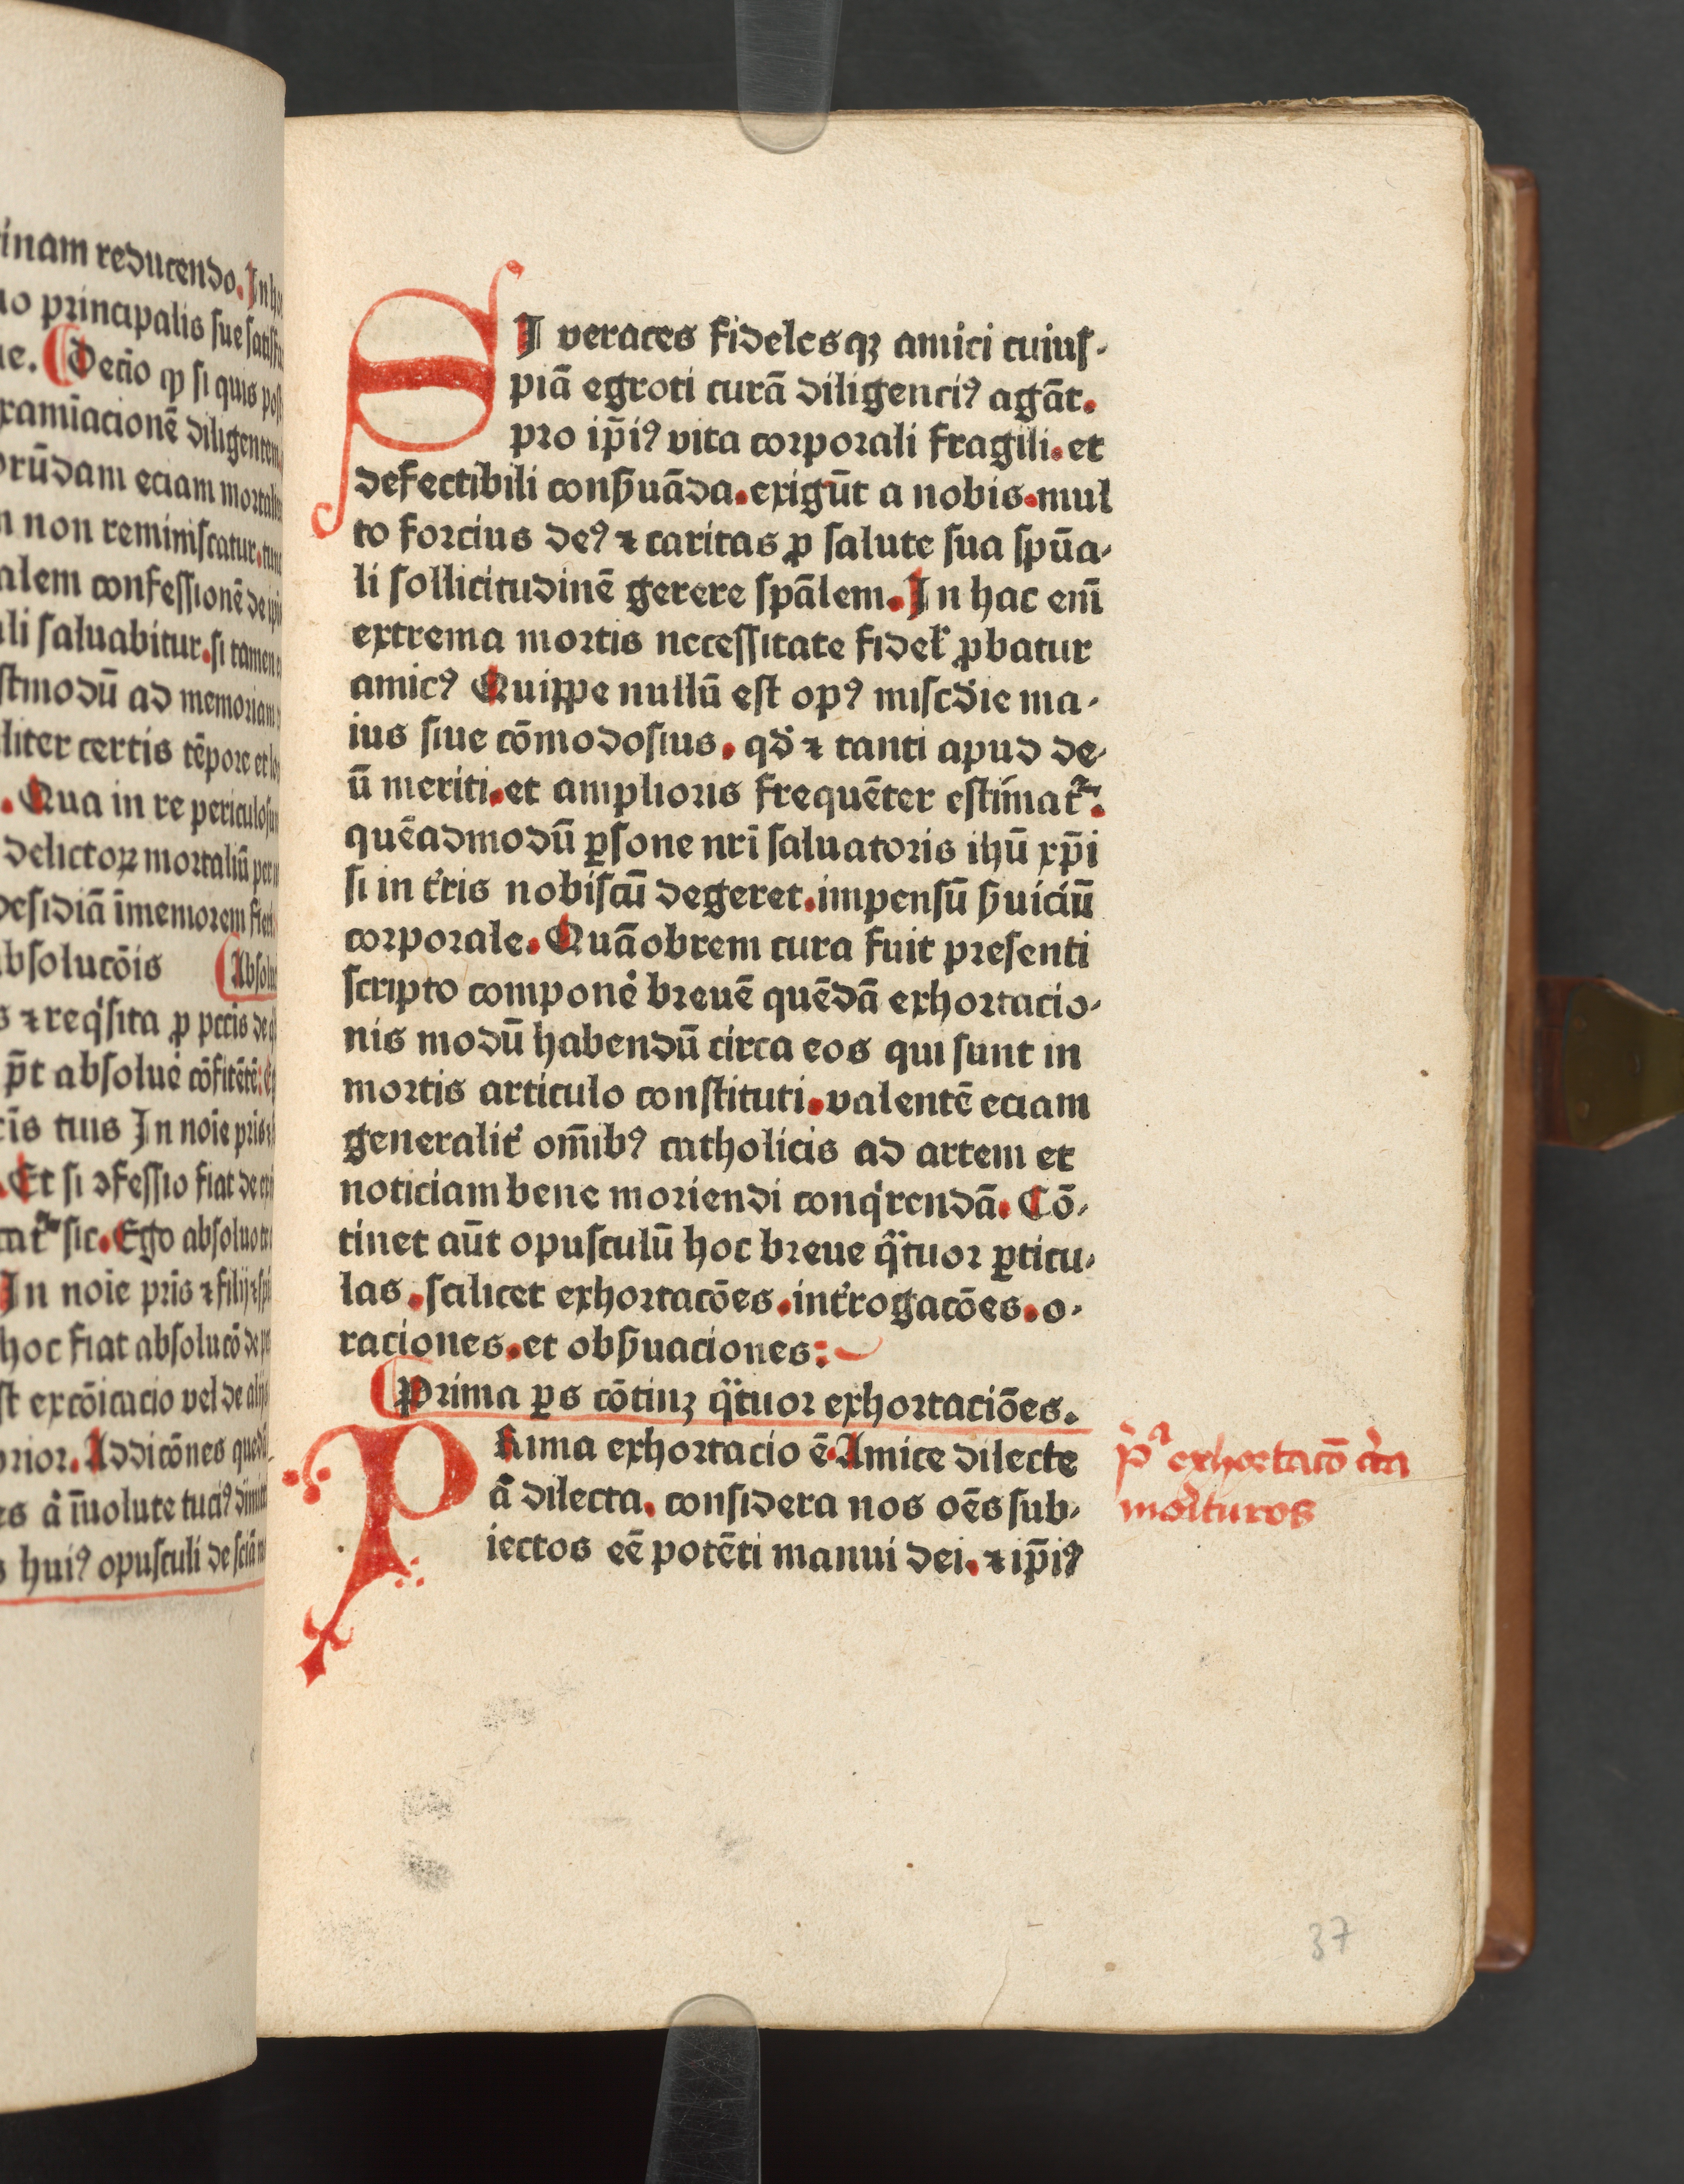 inam reducendo. In ho
uo principalis sue satisfac
ue. Decio ꝙ si quis post
xamiacionē diligentem
orūdam eciam mortaliū
n non reminiscatur. tunc
alem confessionē de ip̄is
ali saluabitur. si tamen
stmodū ad memoriam
liter certis tēpore et lo
. Qua in re periculosum
delictoꝝ mortaliū per
desidiā īmemorem fieri
bsolucōis Absolu
s ⁊ reqͥsita ꝓ pctis de
p̄t absolue᷑ cōfitētē:
cis tuis In noīe pris
. Et si ꝯfessio fiat de
sic. Ego absoluo te
In noīe pris ⁊ filij ⁊ spi
hoc fiat absolucō de
st excōicacio vel de alijs
prior. Addicōnes quedā
es a᷑ īuolute tuciꝰ
s huiꝰ opusculi de sciā
SI veraces fidelesqꝫ amici cuius-
piā egroti curā diligenciꝰ agāt.
pro ip̄iꝰ vita corporali fragili. et
defectibili conẜuāda. exigūt a nobis. mul
to forcius deꝰ ⁊ caritas ꝓ salute sua spūa-
li sollicitudinē gerere spālem. In hac em̄
extrema mortis necessitate fidel᷑ ꝓbatur
amicꝰ Quippe nullū est opꝰ misc᷑die ma-
ius siue cōmodosius. qd᷑ ⁊ tanti apud de-
ū meriti. et amplioris frequēter estimat᷑.
quēadmodū ꝑsone nr̄i saluatoris ihū xp̄i
si in t᷑ris nobiscū degeret. impensū ẜuiciū
corporale. Quāobrem cura fuit presenti
scripto compone᷑ breuē quēdā exhortacio-
nis modū habendū circa eos qui sunt in
mortis articulo constituti. valentē eciam
generalit᷑ om̄ibꝰ catholicis ad artem et
noticiam bene moriendi conqͥrendā. Cō-
tinet aūt opusculū hoc breue qᷓtuor ꝑticu-
las. scilicet exhortacōes. int᷑rogacōes. o-
raciones. et obẜuaciones:
Prima ꝑs cōtinꝫ qᷓtuor exhortaciōes.
PRima exhortacio ē. Amice dilecte
a᷑ dilecta. considera nos oēs sub-
iectos eē potēti manui dei. ⁊ ip̄iꝰ
pͥᵃ exhortacō circa
moͥituros
37